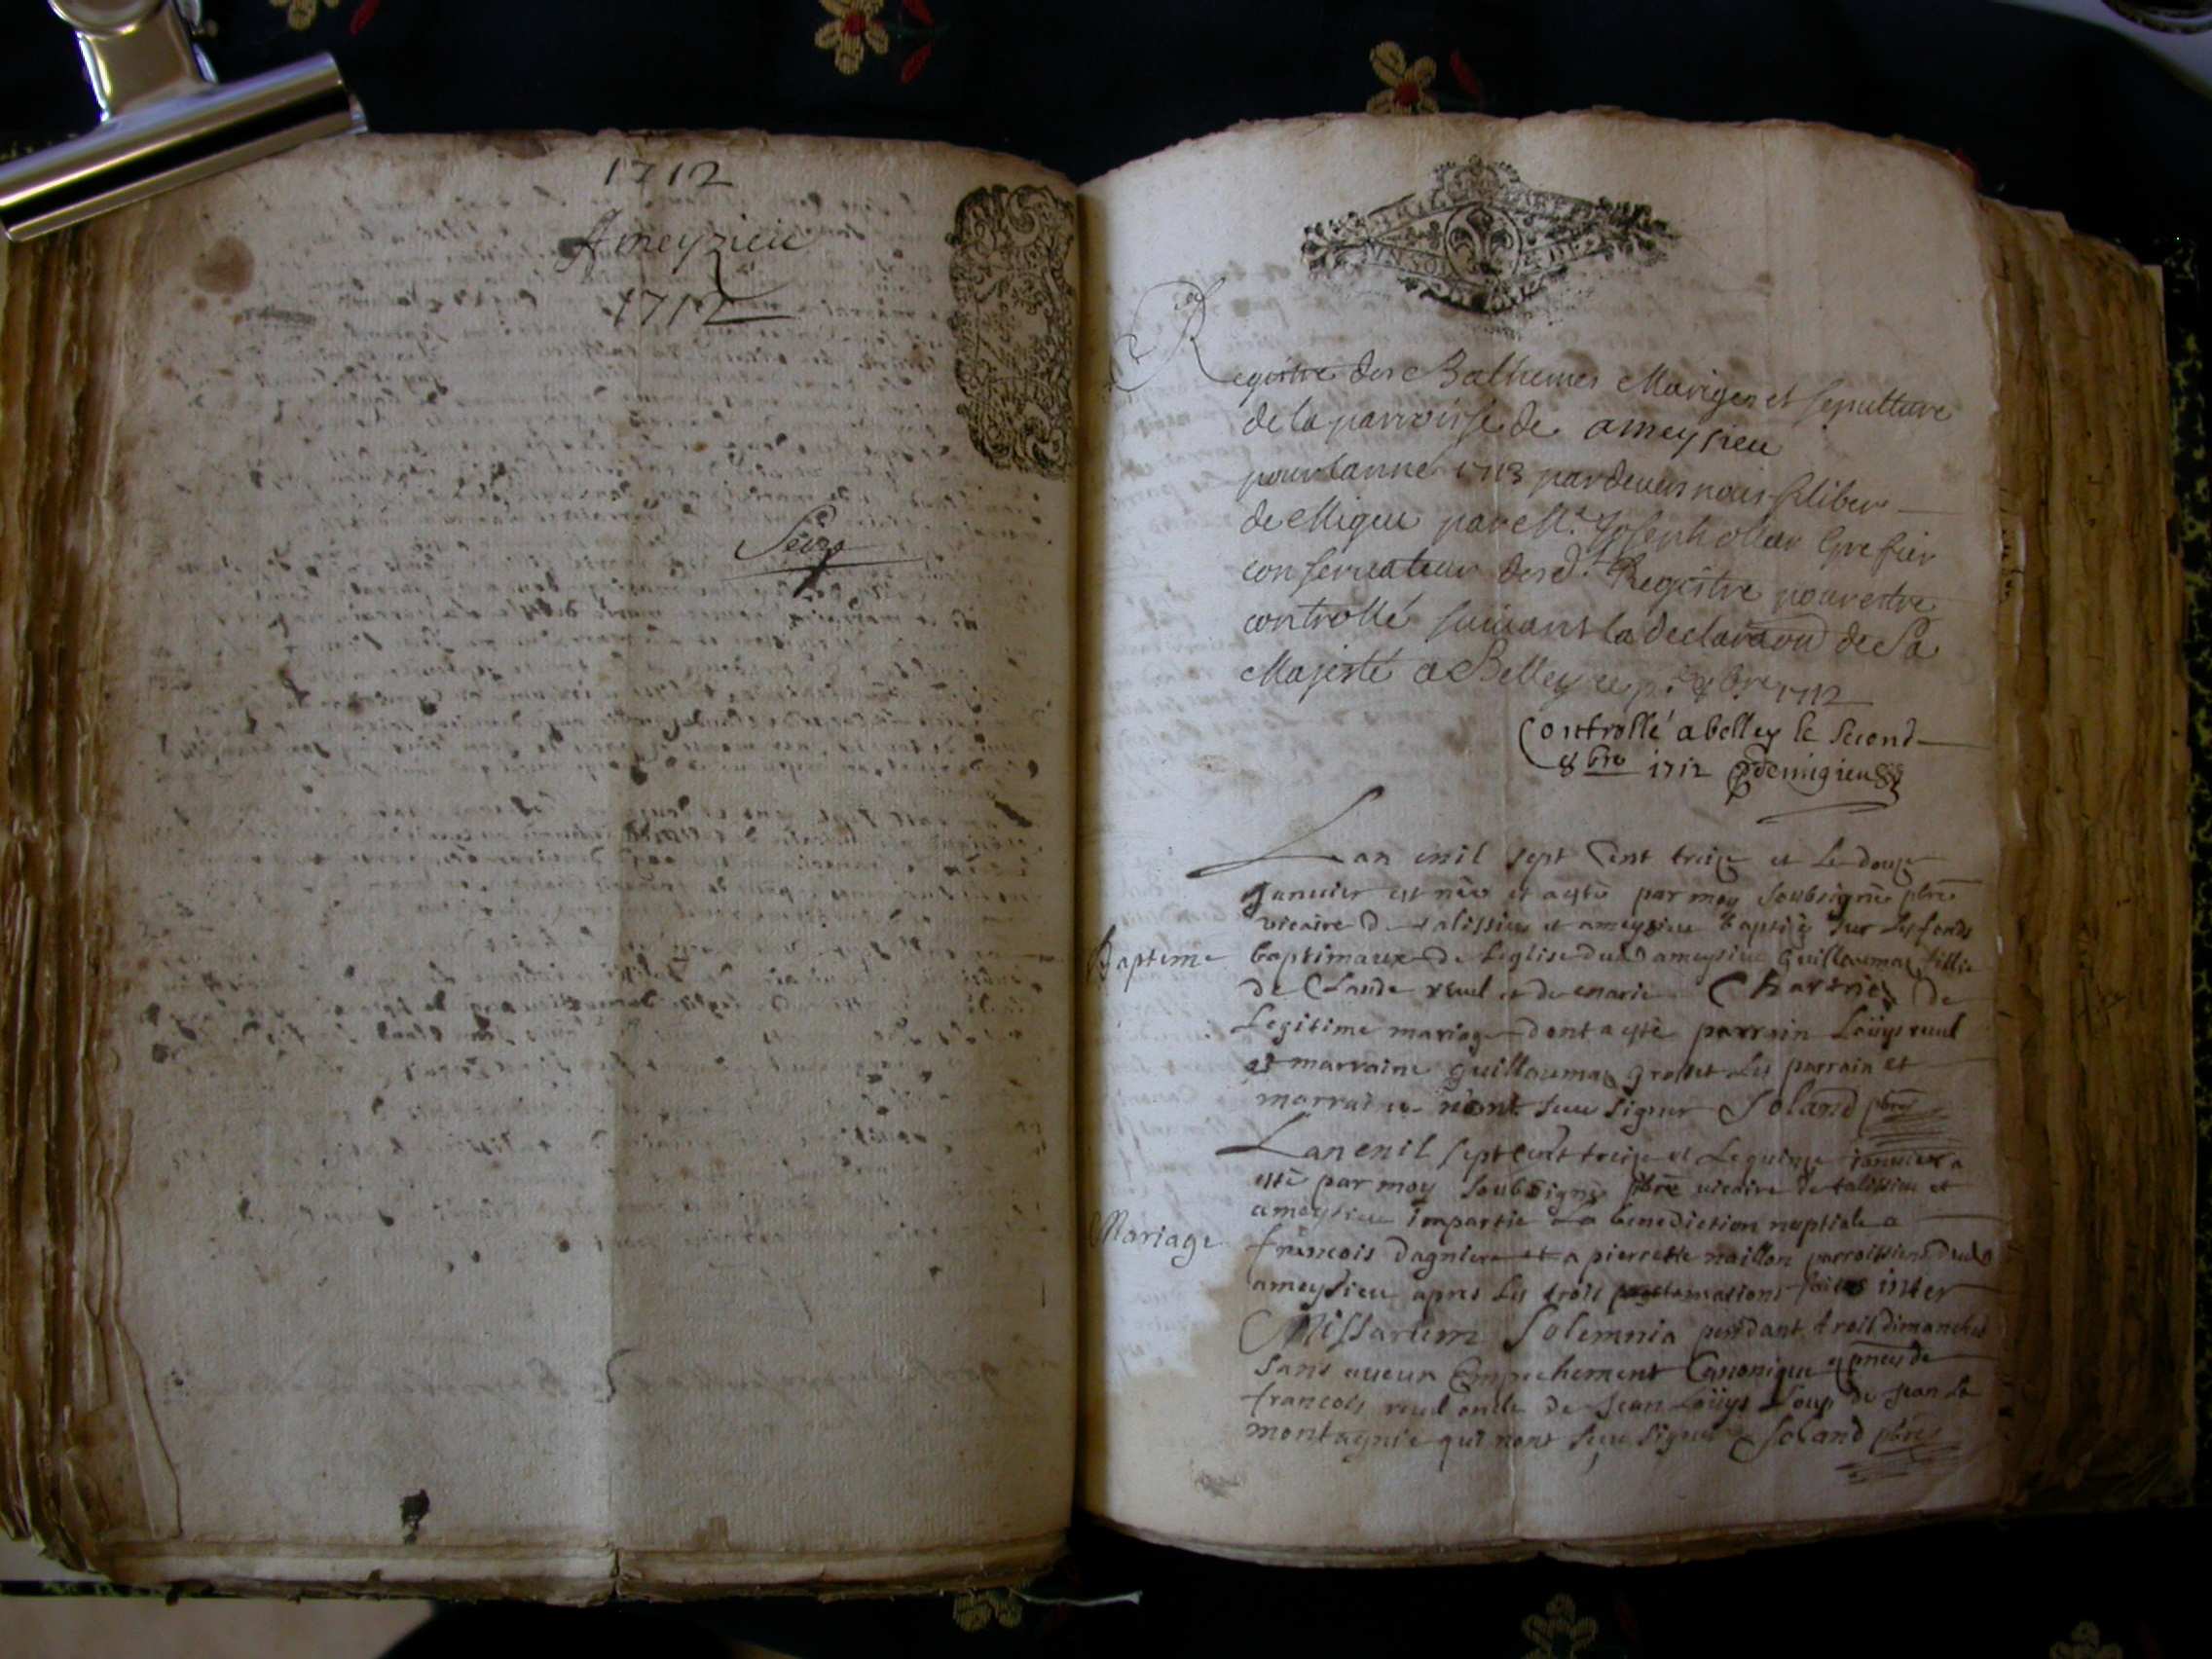 1712
Ameyzieu
1712
Registre des Bathemes Mariges et sepulture
de la parroisse de ameysieu
pour lanné 1713 par devers nous filiber
de Migieu par Mr. Joseph Grefier
conservateur desd. Registre pour estre
controllé suivant la declaraon de Sa
Majesté a Belley ce p. 8bre 1712
Controllé a belley le second
8bre 1712 demigieu
Lan mil sept Cent treize et Le douze
Januier est née et a esté par moy soubsigné pbre
vicaire de talissieu et ameysieu baptisée sur les fonds
Bapteme
baptimaux de Leglise dud ameysieu Guillaumaz fillie
de Claude reuel et de marie de
Legitime mariage dont a esté parrain Loüys reuel
et marraine guillaumaz grosset Les parrain et
marraine nont sceu signer Soland pbre
Lan mil sept cent treize et Le quinze januier a
esté par moy soubsigné pbre vicaire de talissieu et
ameysieu impartie La benediction nuptiale a
Mariage
francois dagnier et a pierrette maillon parroissiens dud
ameysieu apres Les trois proclamations faites inter
Missarum Solemnia pendant trois dimanches
sans aucun Empechement Canonique
francois reuel de Jean Loüys de Jean La
montagnie qui nont sceu signer Soland pbre